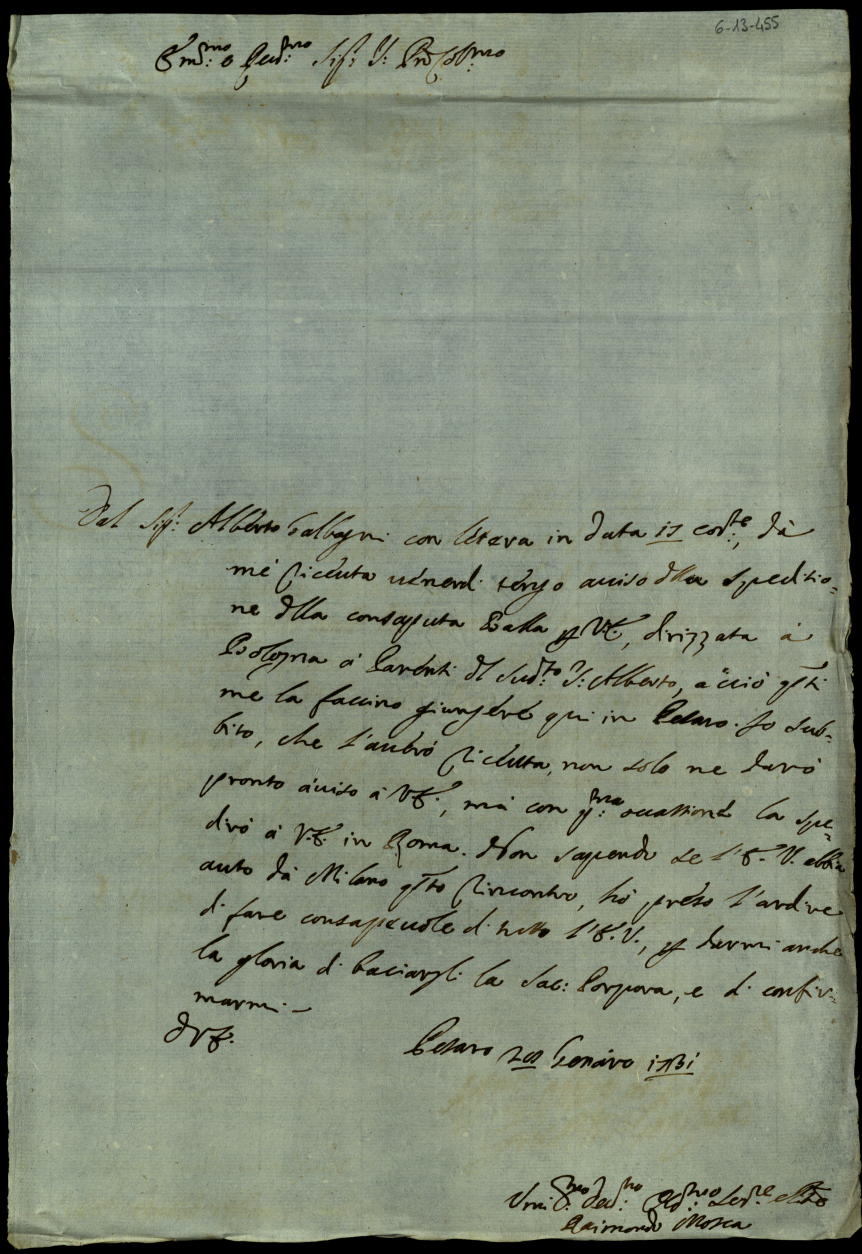 6-13-455
Em̃.mo e Reud.mo Sig.r S.r Prõn Col.mo
Dal Sig.r Alberto Calbegni con letera in data 17 cor.te, dà
mè riceuta uenerdi tengo auiso dlla speditio=
ne dlla consaputa Balla p V.E., dirizzata à
Bologna à Parenti dl Sud.to S.r Alberto, acciò q̃sti
me la faccino giungere qui in Pesaro. Io sub=
bito, che l'auerò riceuta, non solo ne darò
pronto auiso à V.E., mà con p.ma occassione la spe=
dirò à V.E. in Roma. Non sapendo se l'E.V. abbia
auto dà Milano q̃sto rincontro, hò preso l'ardire
di fare consapeuole di tutto l'E.V., p darmi anche
la gloria di baciargli la Sac: Porpora, e di confir=
marmi –
D V.E.
Pesaro 28 Genaro 1731
Vmi.mo Deu.mo Obl.mo Ser.re
Raimondo Mosca